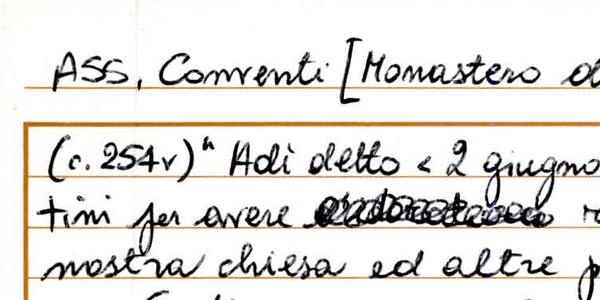 ASS, Conventi [Monastero
(c. 254v)" Adì detto < 2 giugno
tini per avere
nostra chiesa ed altre